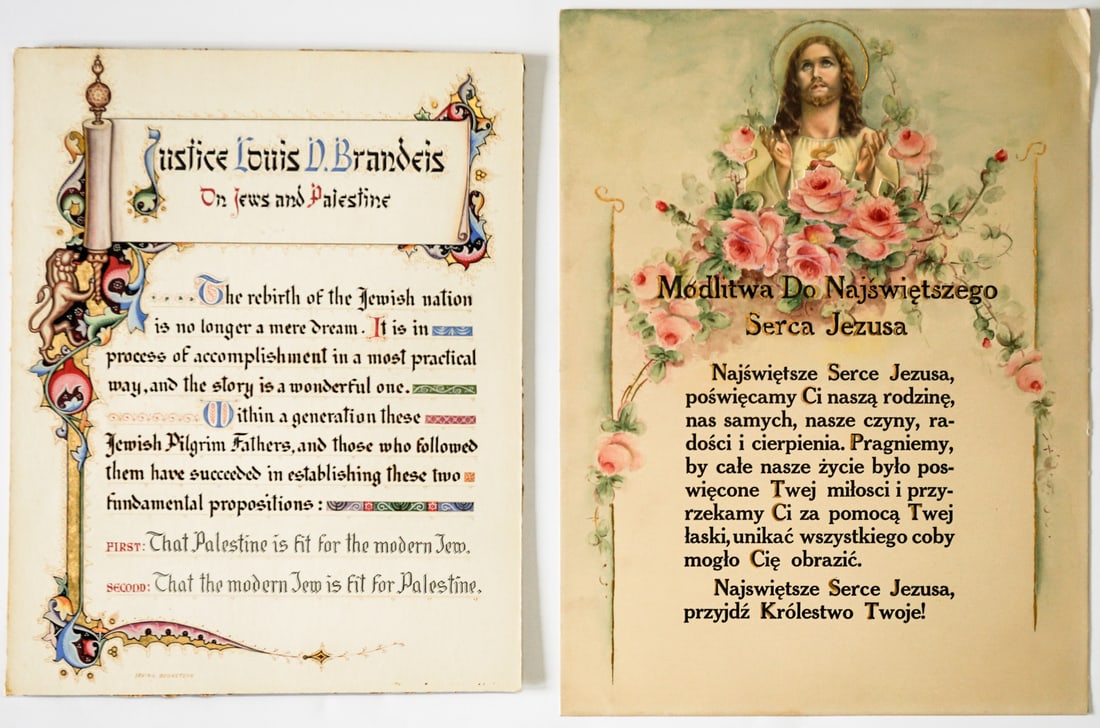 Justice Louis D. Brandeis
On Jews and Palestine
....The rebirth of the Jewish nation
is no longer a mere dream. It is in
process of accomplishment in a most practical
way, and the story is a wonderful one.
Within a generation these
Jewish Pilgrim Fathers, and those who followed
them have succeeded in establishing these two
fundamental propositions:
FIRST: That Palestine is fit for the modern Jew.
SECOND: That the modern Jew is fit for Palestine.
Modlitwa Do Najświętszego
Serca Jezusa
Najświętsze Serce Jezusa,
poświęcamy Ci naszą rodzinę,
nas samych, nasze czyny, ra-
dości i cierpienia. Pragniemy,
by całe nasze życie było pos-
więcone Twej miłosci i przy-
rzekamy Ci za pomocą Twej
łaski, unikać wszystkiego coby
mogło Cię obrazić.
Najswiętsze Serce Jezusa,
przyjdź Królestwo Twoje!